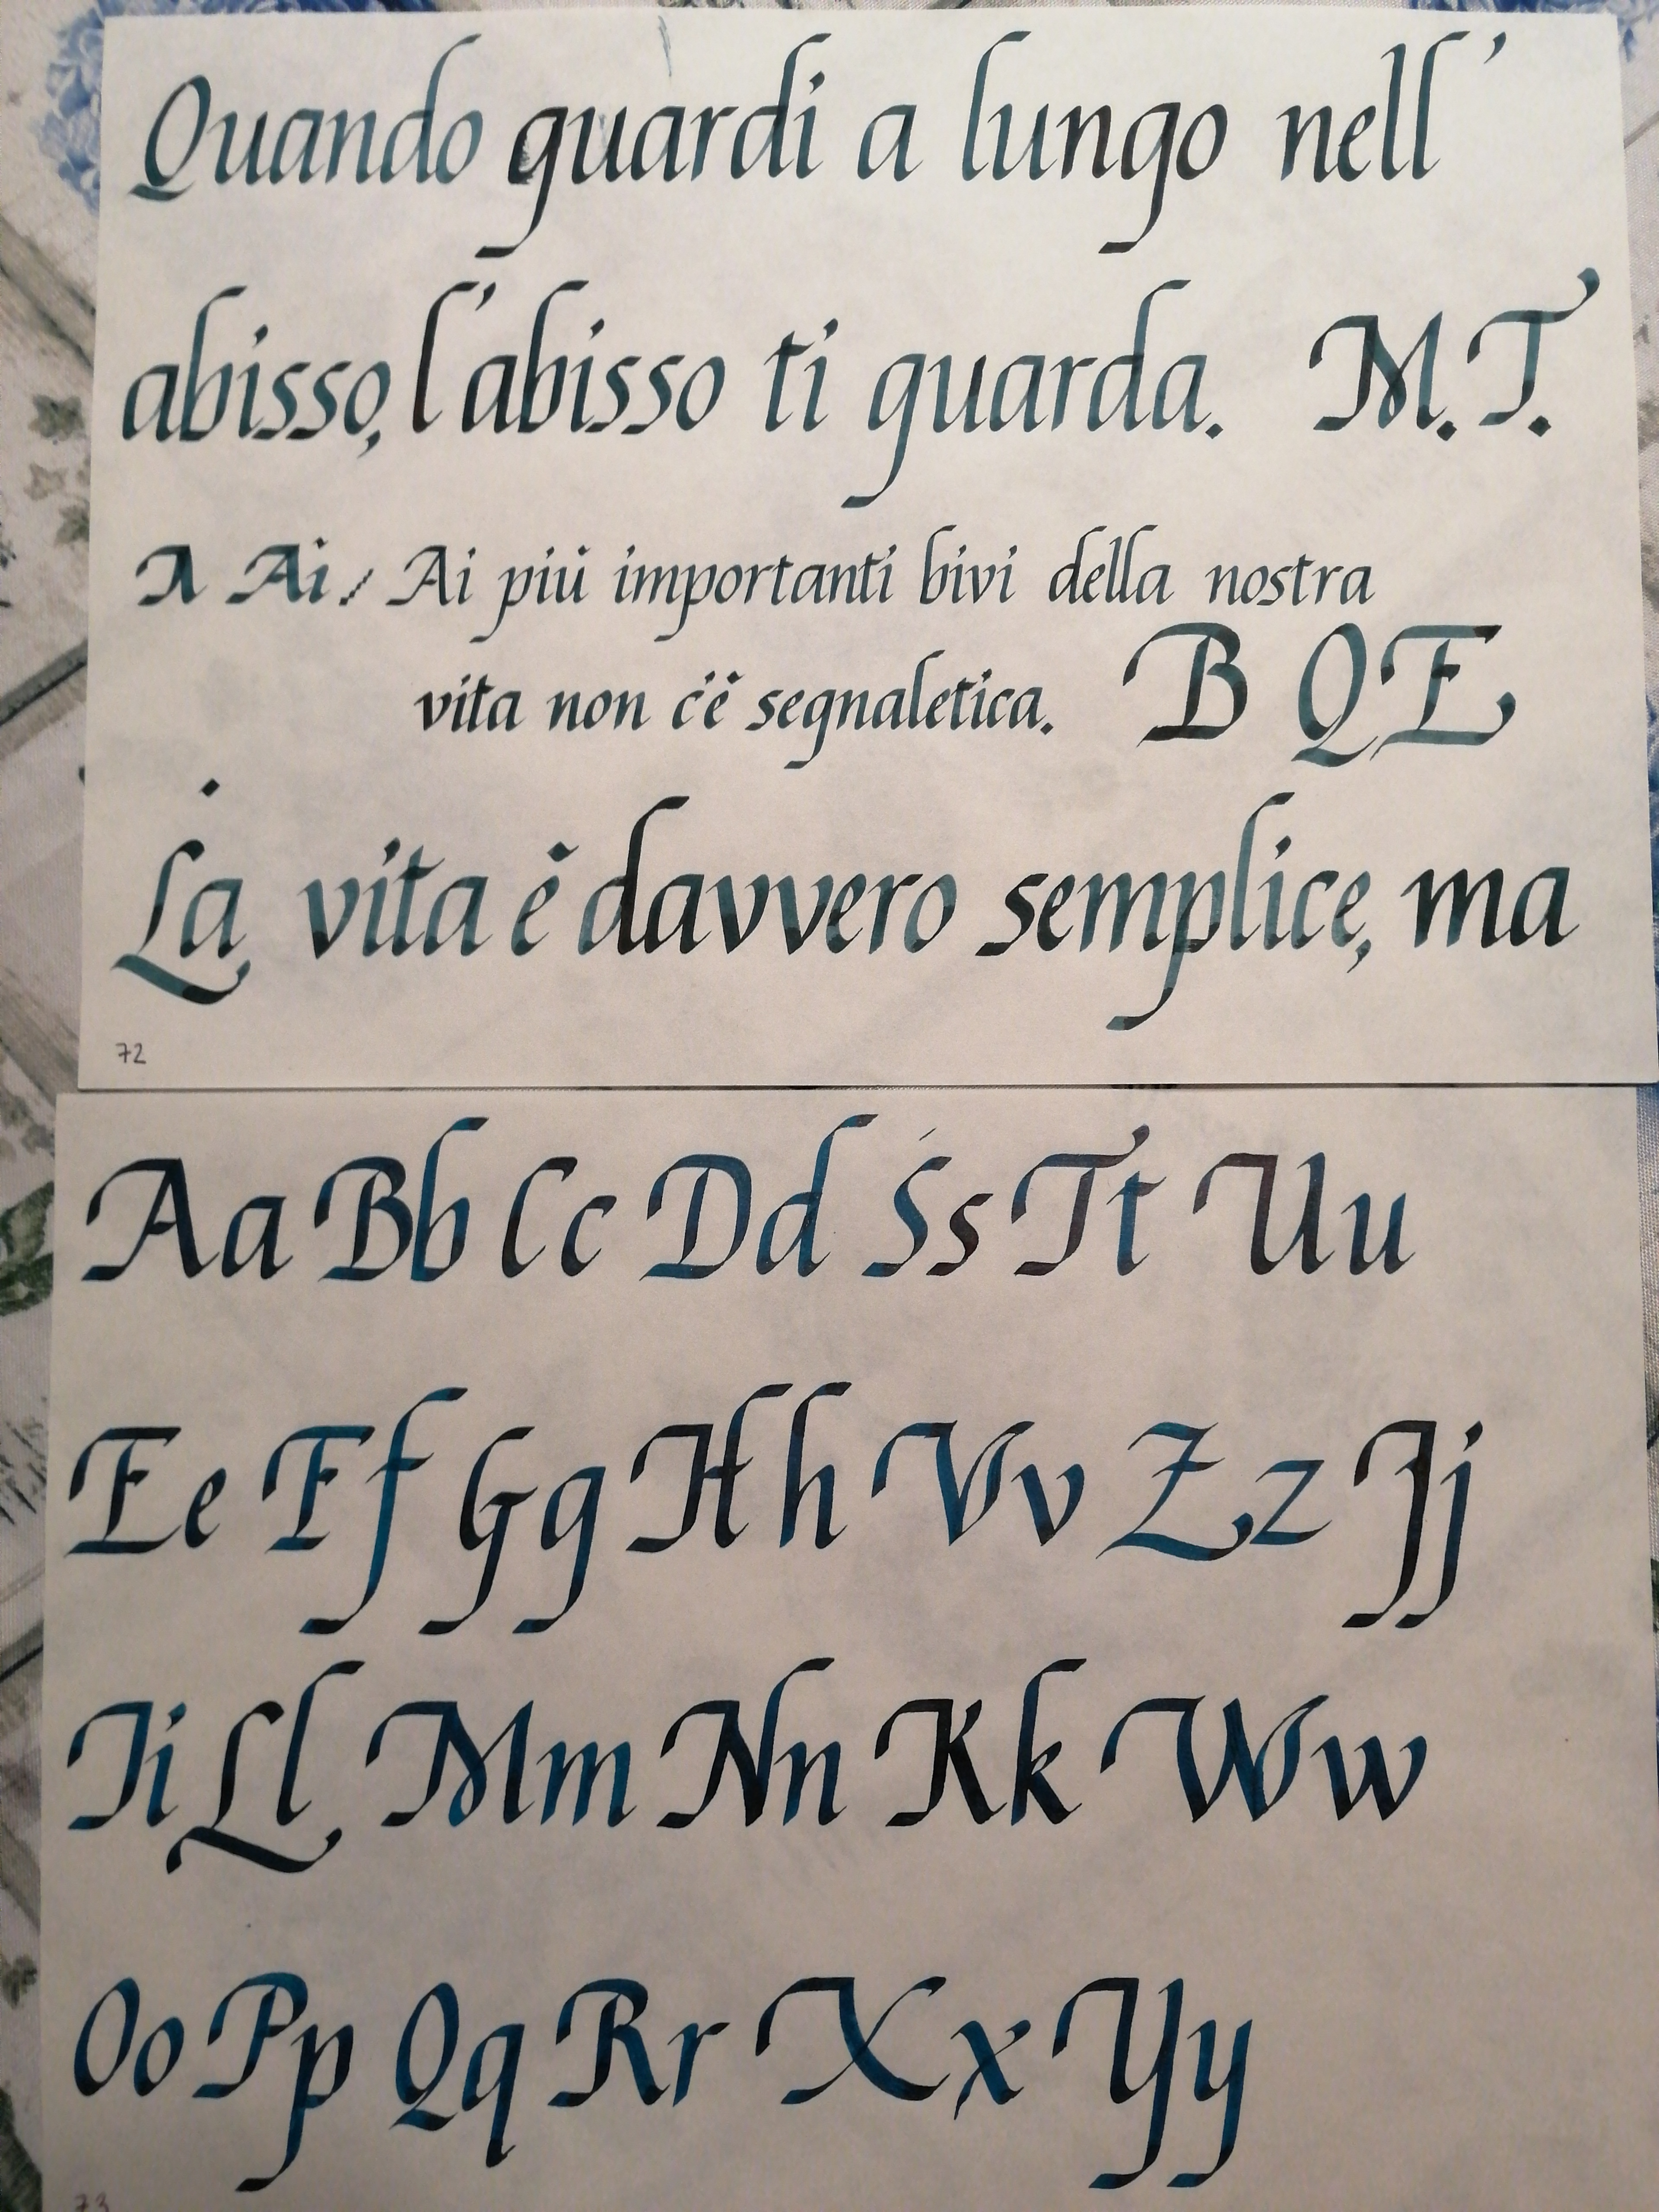 Quando guardi a lungo nell'
abisso, l'abisso ti guarda. M.T.
A Ai, Ai più importanti bivi della nostra
vita non c'è segnaletica. B Q E
La vita è davvero semplice, ma
72
Aa Bb Cc Dd Ss Tt Uu
Ee Ff Gg Hh Vv Zz Jj
Ii Ll Mm Nn Kk Ww
Oo Pp Qq Rr Xx Yy
73